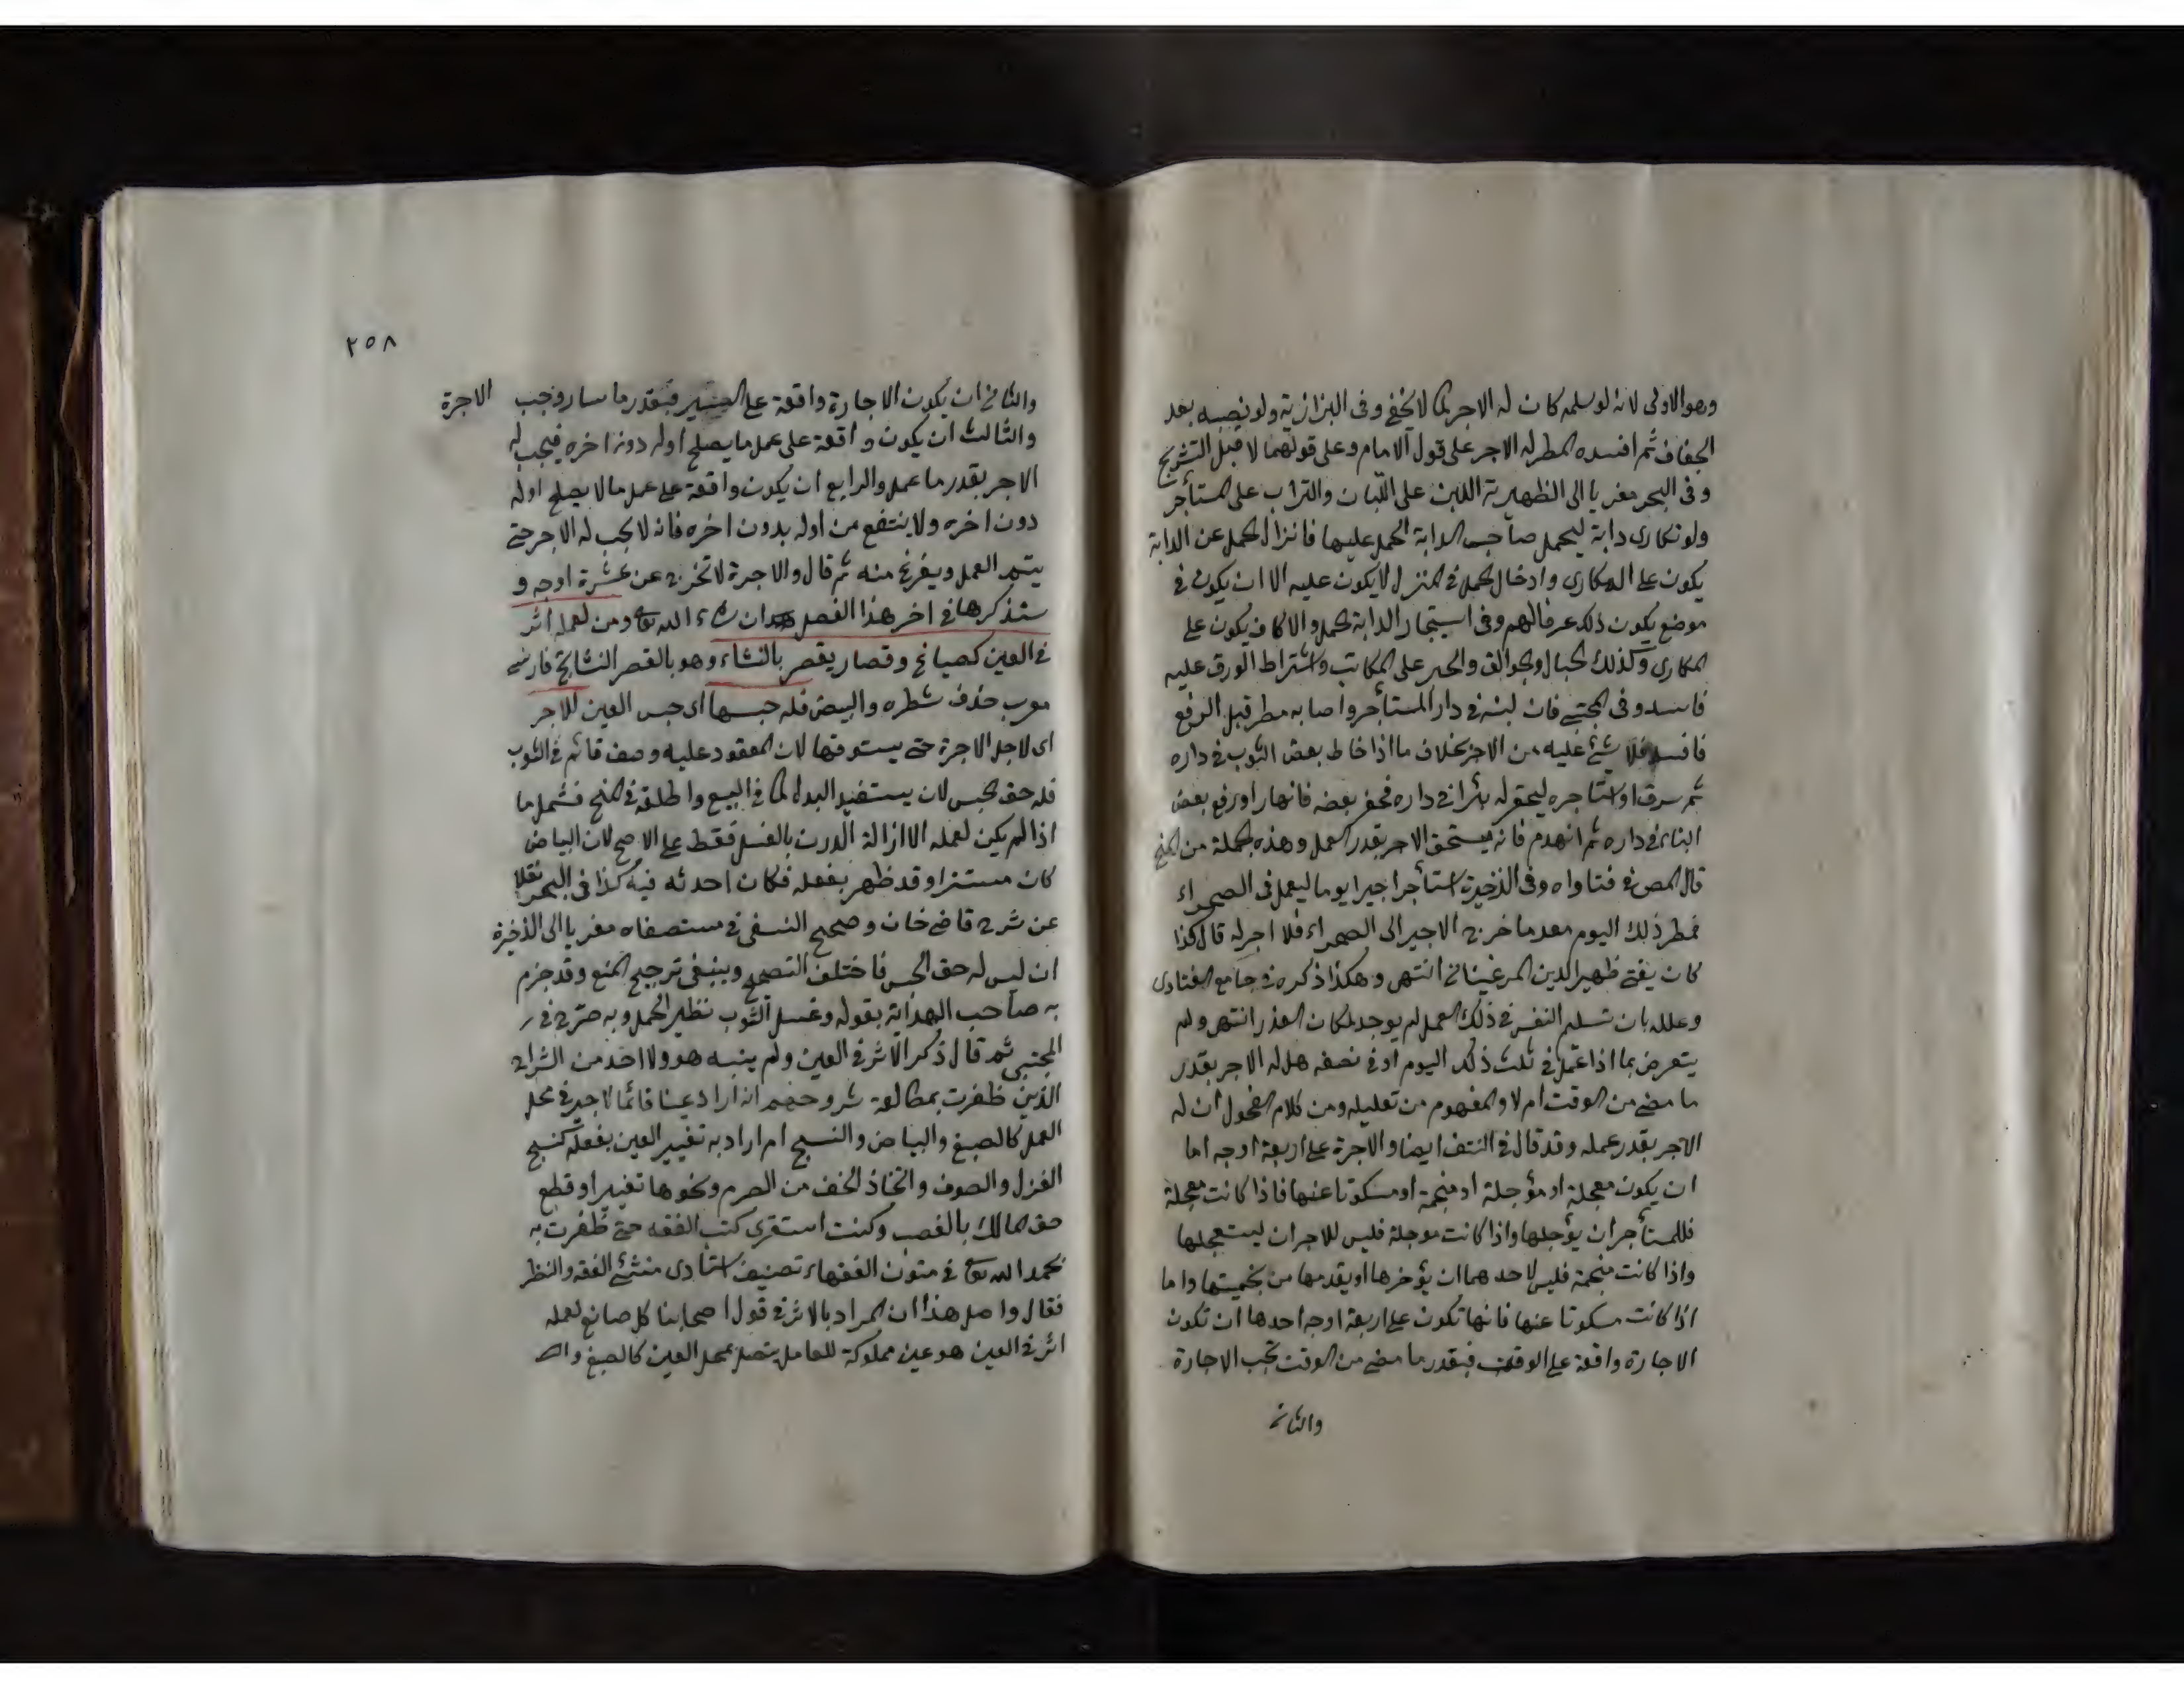 وهو الاولى لانه لو سلمه كان له الاجر كما لا يخفى وفى البزازية ولو نصبه بعد
الجفاف ثم افسده المطر له الاجر على قول الامام وعلى قولهما لا قبل التشريج
وفى البحر مغريا الى الظهيرية اللبن على اللبان والتراب على المستأجر
ولو تكارى دابة ليحمل صاحب الدابة الحمل عليها فانزال الحمل عن الدابة
يكون على المكارى وادخال الحمل فى المنزل لا يكون عليه الا ان يكون فى
موضع يكون ذلك عرفا لهم وفى استيجار الدابة للحمل والاكاف يكون على
المكارى وكذلك الحبال والجوالق والحبر على الكاتب واشتراط الورق عليه
فاسد وفى المجتبى فان لبنه فى دار المستأجر واصابه مطر قبل الرفع
فافسده فلا شئ عليه من الاجر بخلاف ما اذا خاط بعض الثوب فى داره
ثم سرق او استاجره ليحفر له بئرا فى داره فحفر بعضه فانهار او رفع بعض
البناء فى داره ثم انهدم فانه يستحق الاجر بقدر العمل وهذه الجملة من المنح
قال المص فى فتاواه وفى الذخيرة استأجر اجيرا يوما ليعمل فى الصحراء
فمطر ذلك اليوم بعد ما خرج الاجير الى الصحراء فلا اجر له قال كذا
كان يفتى ظهير الدين المرغينانى انتهى وهكذا ذكره فى جامع الفتاوى
وعلله بان تسليم النفس فى ذلك العمل لم يوجد لمكان العذر انتهى ولم
يتعرض بما اذا عمل فى ثلث ذلك اليوم او فى نصفه هل له الاجر بقدر
ما مضى من الوقت ام لا والمفهوم من تعليله ومن كلام الفحول ان له
الاجر بقدر عمله وقد قال فى النتف ايضا والاجرة على اربعة اوجه اما
ان يكون معجلة او مؤجلة او منجمة او مسكوتا عنها فاذا كانت معجلة
فللمستأجر ان يؤجلها واذا كانت موجلة فليس للاجر ان يستعجلها
واذا كانت منجمة فليس لاحدهما ان يؤخرها او يقدمها من نجميتها واما
اذا كانت مسكوتا عنها فانها تكون على اربعة اوجه احدها ان تكون
الاجارة واقعة على الوقت فبقدر ما مضى من الوقت تجب الاجارة
والثانى
٢٥٨
والثانى ان يكون الاجارة واقعة على المسير فبقدر ما سار وجب الاجرة
والثالث ان يكون واقعة على عمل ما يصلح اوله دون اخره فيجب له
الاجر بقدر ما عمل والرابع ان يكون واقعة على عمل ما لا يصلح اوله
دون اخره ولا ينتفع من اوله بدون اخره فانه لا يجب له الاجر حتى
يتم العمل ويفرغ منه ثم قال والاجرة لا تخرج عن عشرة اوجه و
سنذكرها فى اخر هذا الفصل ان شاء الله تع ومن لعمله اثر
فى العين كصباغ وقصار يقصر بالنشاء وهو بالقصر النشاستج فارسى
معرب حذف شطره والبيض فله حبسها اى حبس العين للاجر
اى لاجل الاجرة حتى يستوفها لان المعقود عليه وصف قائم فى الثوب
فله حق الحبس لان يستفيد البدل كما فى البيع واطلقه فى المنح فشمل ما
اذا لم يكن لعمله الا ازالة الدرن بالغسل فقط على الاصح لان البياض
كان مستترا وقد ظهر بفعله فكان احدثه فيه كذا فى البحر نقلا
عن شرح قاضى خان وصحح النسفى فى مستصفاه مغريا الى الذخيرة
ان ليس له حق الحبس فاختلف التصحيح وينبغى ترجيح المنع وقد جزم
به صاحب الهداية بقوله وغسل الثوب نظير الحمل وبه صرح فى
المجتبى ثم قال ذكر الاثر فى العين ولم ينبه هو ولا احد من الشراح
الذين ظفرت بمطالعة شروحهم انه اراد عينا قائما لاجير فى محل
العمل كالصبغ والبياض والنسيج ام اراد به تغيير العين بفعله كنسج
الغزل والصوف واتخاذ الخف من الصرم ونحوها تغييرا وقطع
حق المالك بالغصب وكنت استقرى كتب الفقه حتى ظفرت به
بحمد الله تع فى متون الفقهاء تصنيف استادى منشئ الفقه والنظر
فقال واصل هذا ان المراد بالاثر فى قول اصحابنا كل صانع لعمله
اثر فى العين هو عين مملوكة للعامل يتصل بمحل العين كالصبغ